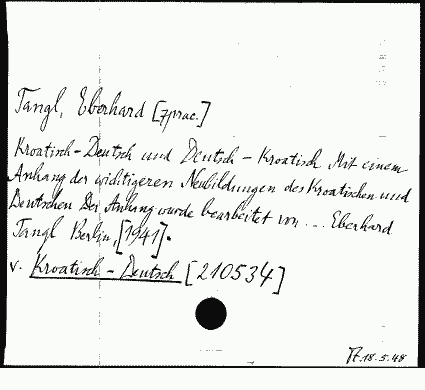 Tangl, Eberhard [zprac.]
Kroatisch - Deutsch und Deutsch - Kroatisch Mit einem
Anhang der wichtigeren Neubildungen des Kroatischen und
Deutschen Der Anhang wurde bearbeitet von ... Eberhard
Tangl Berlin, [1941].
v. Kroatisch - Deutsch [210534]
18.5.48